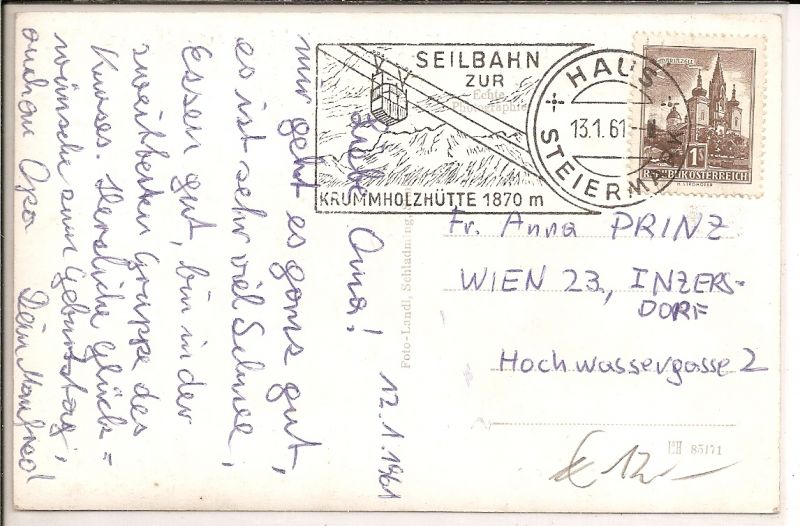 SEILBAHN
ZUR
KRUMMHOLZHÜTTE 1870 m
HAUS
13.1.61
STEIERMARK
1S
REPUBLIK ÖSTERREICH
Echte
Photographie
Foto-Landl, Schladming,
Fr. Anna PRINZ
WIEN 23, INZERS-
DORF
Hochwassergasse 2
HH 85171
€ 12.-
12.1.1961
Liebe Oma!
mir geht es ganz gut,
es ist sehr viel Schnee,
Essen gut, bin in der
zweitbesten Gruppe des
Kurses. Herzliche Glück=
wünsche zum Geburtstag,
auch an Opa Dein Manfred